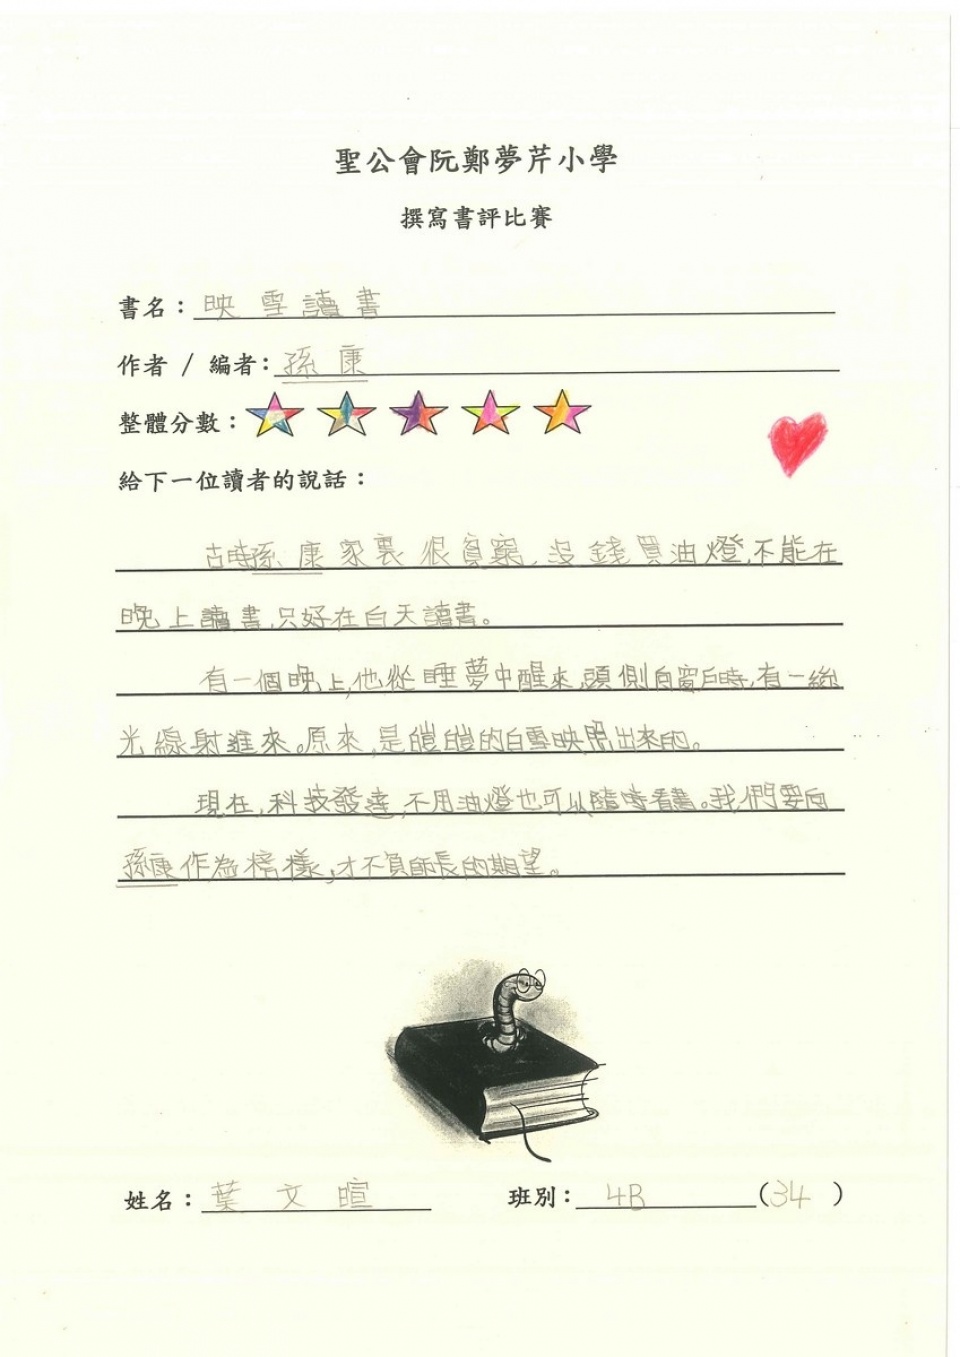 聖公會阮鄭夢芹小學
撰寫書評比賽
書名：映雪讀書
作者 / 編者：孫康
整體分數：
給下一位讀者的說話：
古時孫康家裏很貧窮，沒錢買油燈，不能在
晚上讀書，只好在白天讀書。
有一個晚上，他從睡夢中醒來，頭側向窗戶時，有一絲
光線射進來。原來，是皚皚的白雪映照出來的。
現在，科技發達，不用油燈也可以隨時看書。我們要向
孫康作為榜樣，才不負師長的期望。
姓名：葉文暄 班別：4B (34)